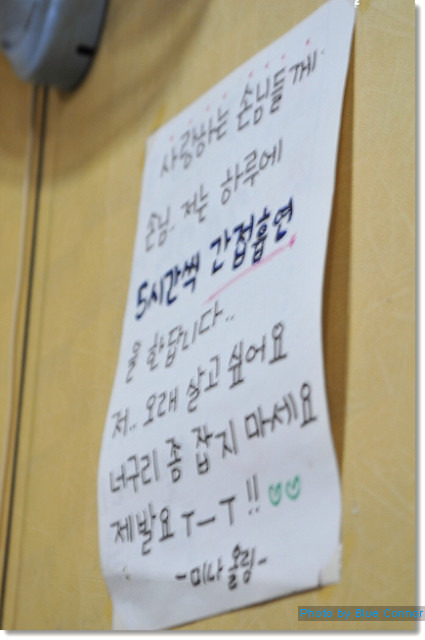 사랑하는 손님들께
손님. 저는 하루에
5시간씩 간접흡연
을 한답니다..
저.. 오래 살고 싶어요
너구리 좀 잡지 마세요
제발요 ㅜㅡㅜ !!
-미나 올림-